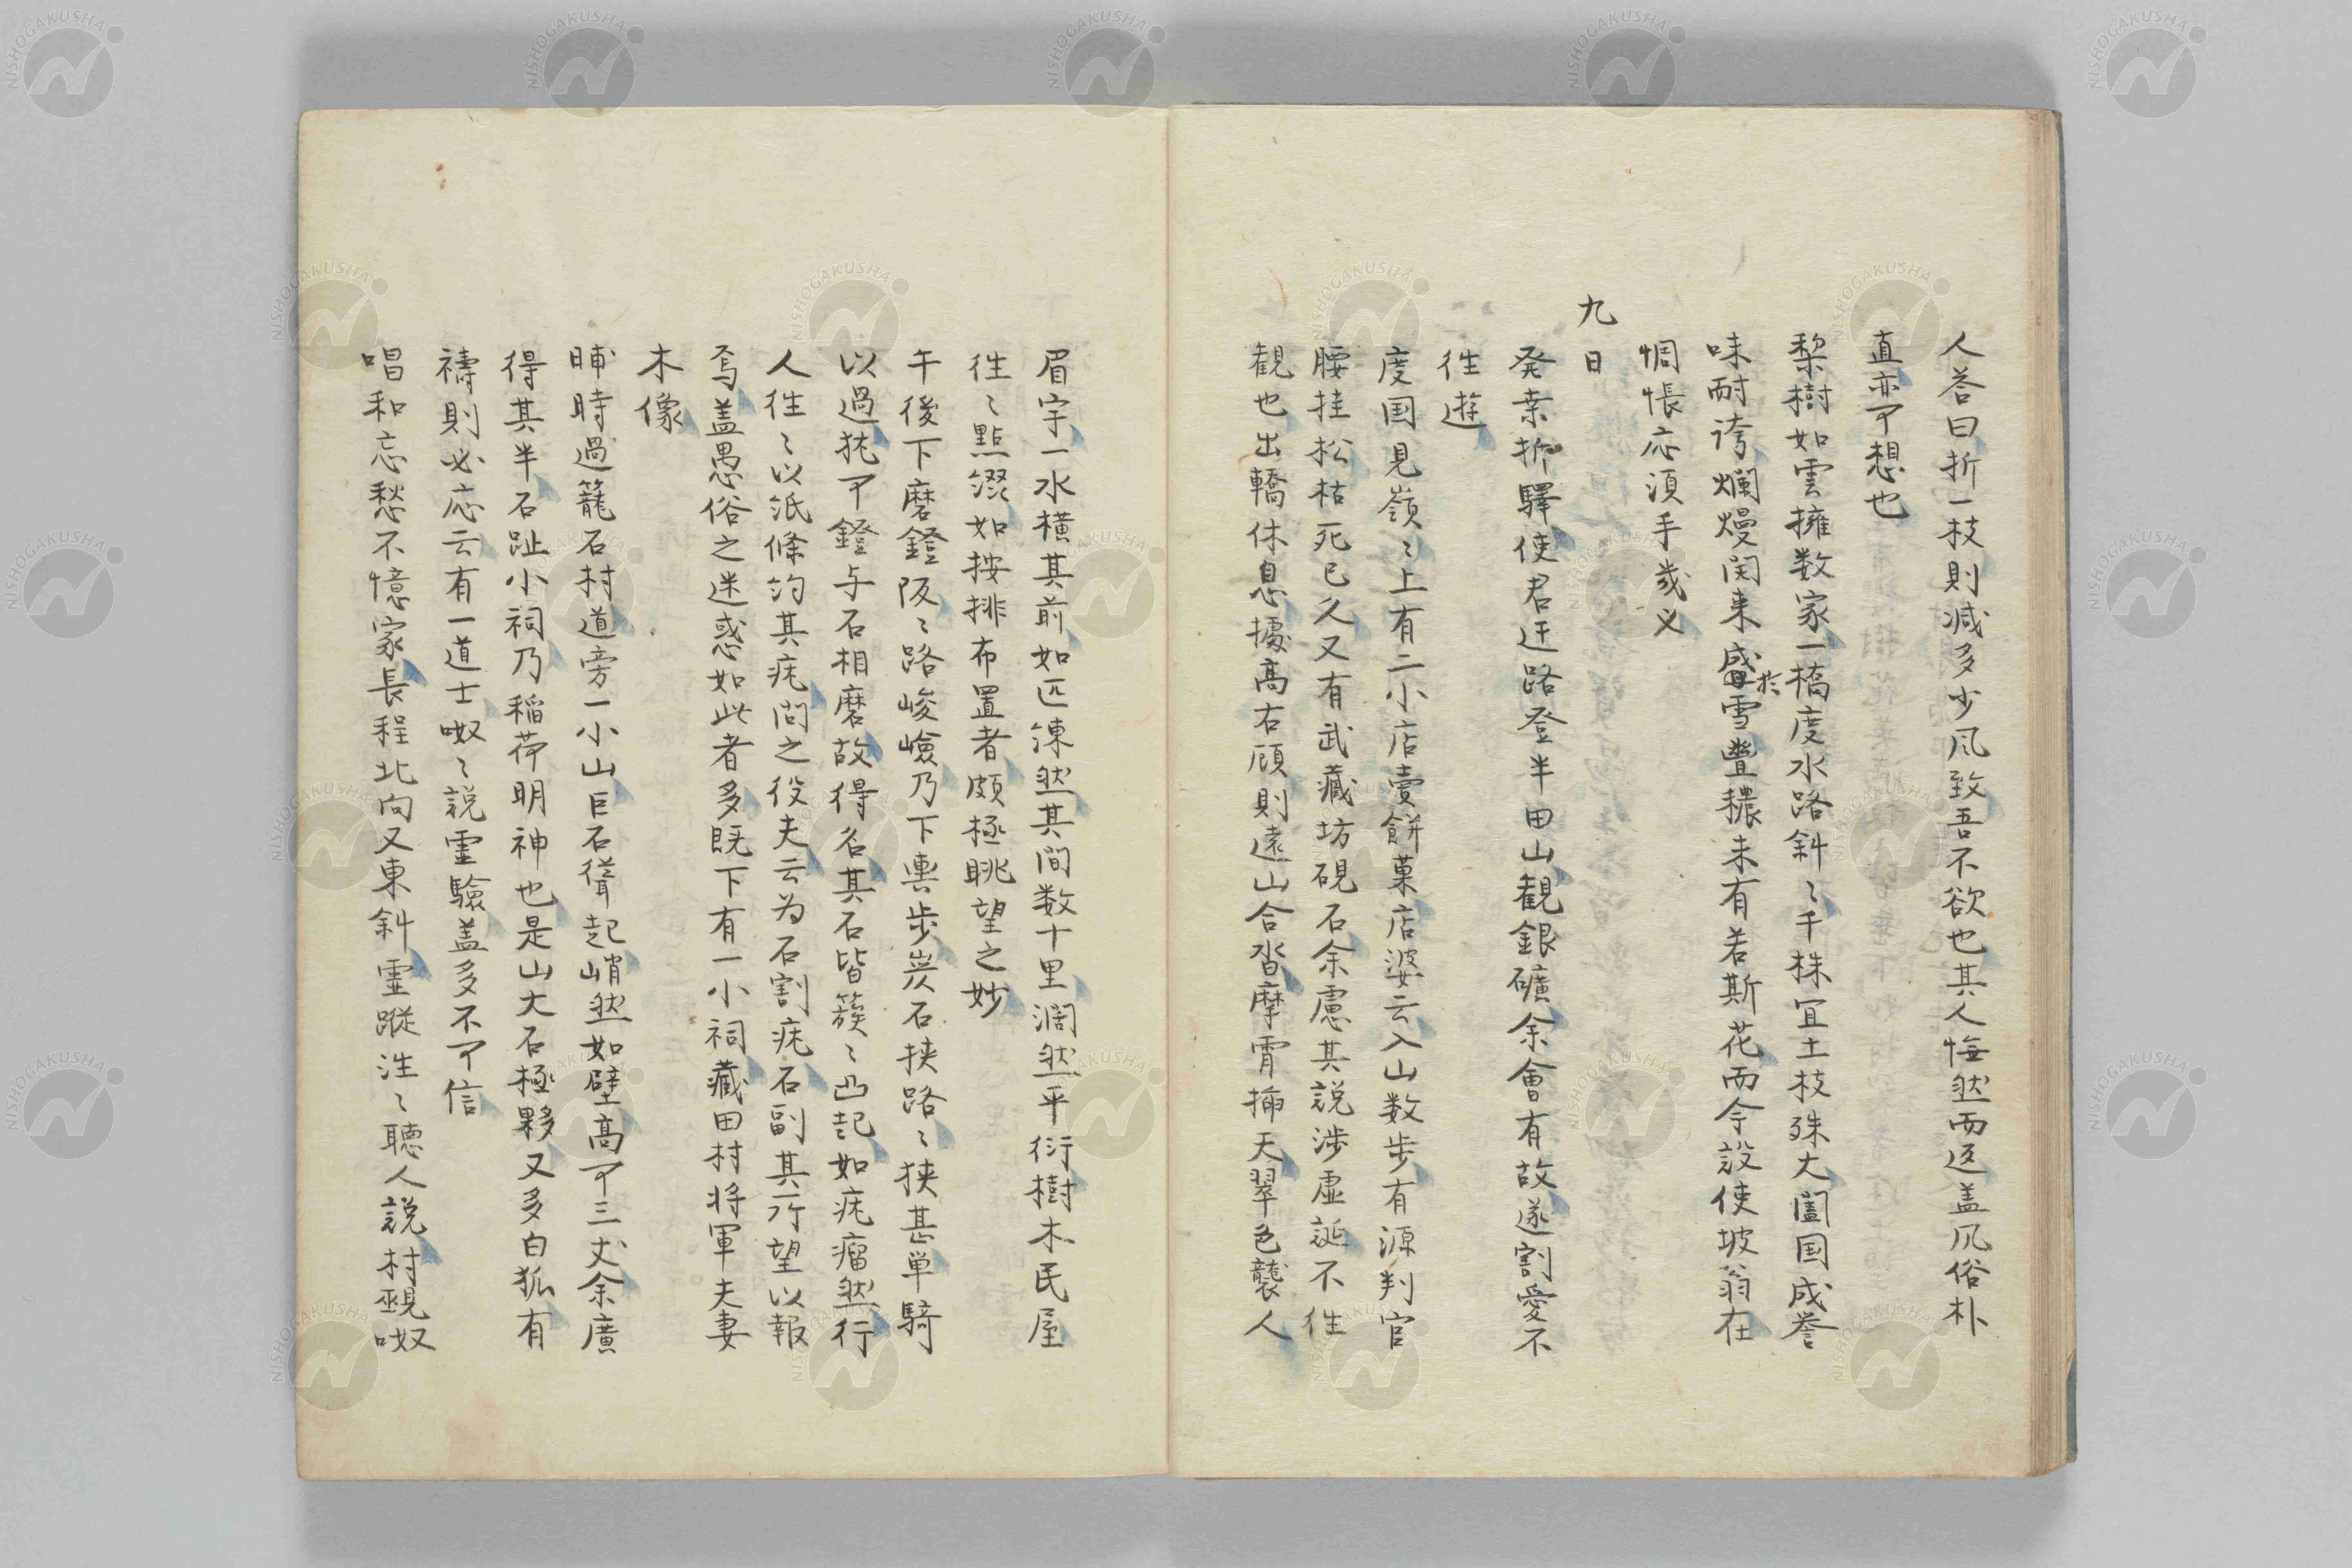 人答曰折一枝則減多少风致吾不欲也其人悔然而返盖风俗朴
直亦可想也
梨樹如雲擁数家一橋度水路斜〻千株宜土枝殊大闔国成誉
味耐誇爛熳関来盛於雪豊穠未有若斯花而今設使坡翁在
惆悵応須手幾叉
九日
発桒折驛使君迂路登半田山観銀礦余會有故遂割愛不
往遊
度国見嶺〻上有二小店賣餅菓店婆云入山数歩有源判官
腰挂松枯死已久又有武藏坊硯石余慮其説渉虚誕不往
観也出轎休息據高右顧則遠山合沓摩霄挿天翠色襲人
眉宇一水横其前如匹練然其間数十里濶然平衍樹木民屋
往〻點綴如按排布置者頗極眺望之妙
午後下磨鐙阪〻路峻嶮乃下輿歩炭石挟路〻狭甚単騎
以過犹可鐙与石相磨故得名其石皆簇〻凸起如疣瘤然行
人往〻以紙條約其疣問之役夫云为石割疣石副其所望以報
焉盖愚俗之迷惑如此者多既下有一小祠藏田村将軍夫妻
木像
晡時過籠石村道旁一小山巨石聳起峭然如壁高可三丈余廣
得其半石趾小祠乃稲荷明神也是山大石極夥又多白狐有
禱則必応云有一道士呶〻説霊驗盖多不可信
唱和忘愁不憶家長程北向又東斜霊蹤往〻聴人説村覡呶